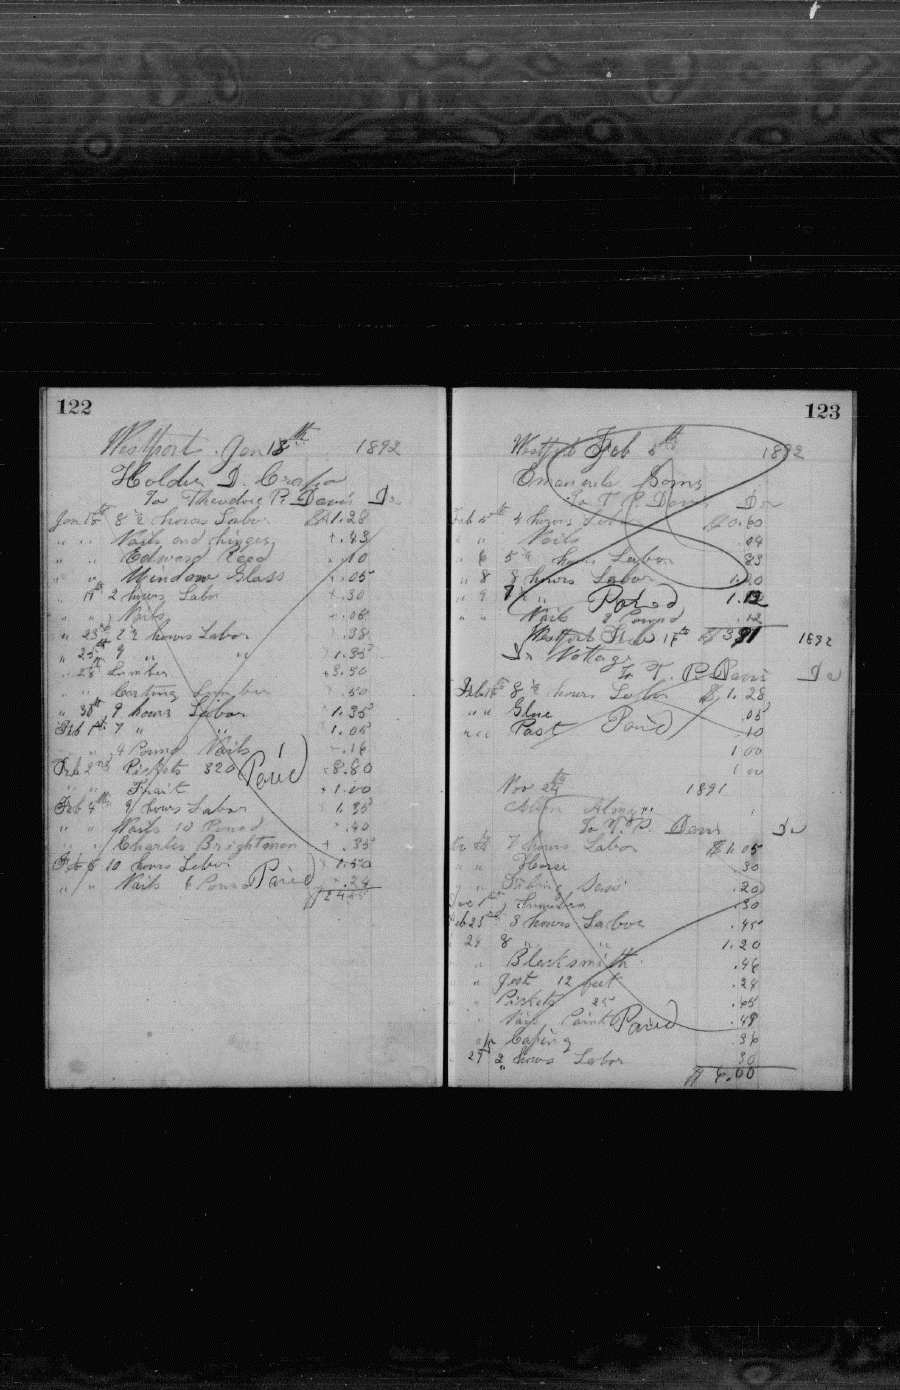 122
Westport Jan 18th 1892
Holder D. Crapo
To Theodore P. Davis Dr
Jan 18th 8 1/2 hours Labor $1.28
" " Nails and hinges .43
" " Edward Reed .10
" " Window Glass .05
" 19th 2 hours Labor .30
" " Nails .06
" 23rd 2 1/2 hours Labor .38
" 25th 9 " " 1.35
" 28th Lumber 3.50
" " Carting Lumber .50
" 30th 9 hours Labor 1.35
Feb 1st 7 " " 1.05
" " 4 Pound Nails .16
Feb 2nd Pickets 320 8.80
Paied
" " Frait 1.00
Feb 4th 9 hours Labor 1.35
" " Nails 10 Pound .40
" " Charles Brightman .35
Feb 6 10 hours Labor 1.50
" " Nails 6 Pound Paied .24
123
Westport Feb 5th 1892
To T. P. Davis Dr
Feb 5th 4 hours Labor $0.60
" " Nails .04
" 6 5 1/2 hours Labor 83
" 8 8 hours Labor 1.20
" 9 7 " " Paied 1.12
" " Nails Pound .12
Westport Feb 17th 1892
To T. P. Davis Dr
Feb 8 1/2 hours Labor $1.28
" " Glue .05
" " Post Paied .10
1 00
1 00
Nov 1891
To T. P. Davis Dr
7 hours Labor $1.05
" " Horse .30
.20
Dec 1st Lumber .30
Feb 23rd 3 hours Labor .45
24 8 " " 1.20
" Blacksmith .46
" " 12 feet .24
" " Pickets 25
" Paint Paied
.36
" 27 2 hours Labor 30
$6.00